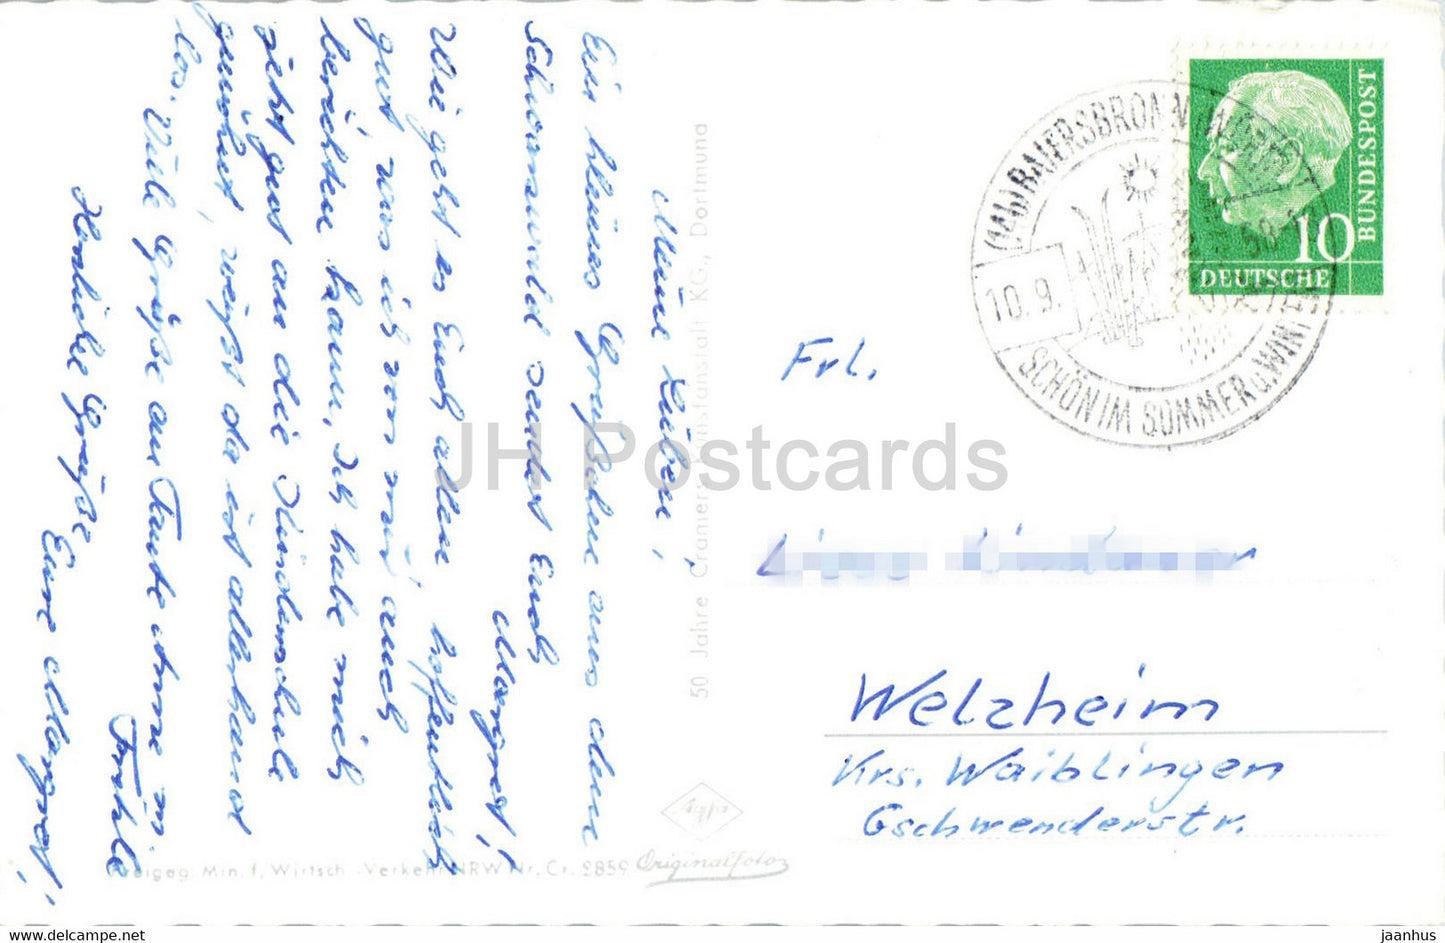 Meine Lieben!
Ein kleines Grüßchen aus dem
Schwarzwald sendet Euch
Margret!
Wie geht es Euch allen, hoffentlich
gut was ich von mir auch
berichten kann, ich habe mich
jetzt gut an die Kinderschule
gewöhnt, weißt da ist allerhand
los. Viele Grüße an Tante Anne u.
Herzliche Grüße
Eure Margret!
50 Jahre Cramers Kunstanstalt KG., Dortmund
Agfa
Originalfoto
Freigeg. Min. f. Wirtsch. - Verkehr NRW Nr. Cr. 2859
(14b) BAIERSBRONN
10.9. 58
SCHÖN IM SOMMER u. WINTER
DEUTSCHE
BUNDESPOST
10
Frl.
Welzheim
Krs. Waiblingen
Gschwenderstr.
JH Postcards
www.hippostcard.com
jaanhus